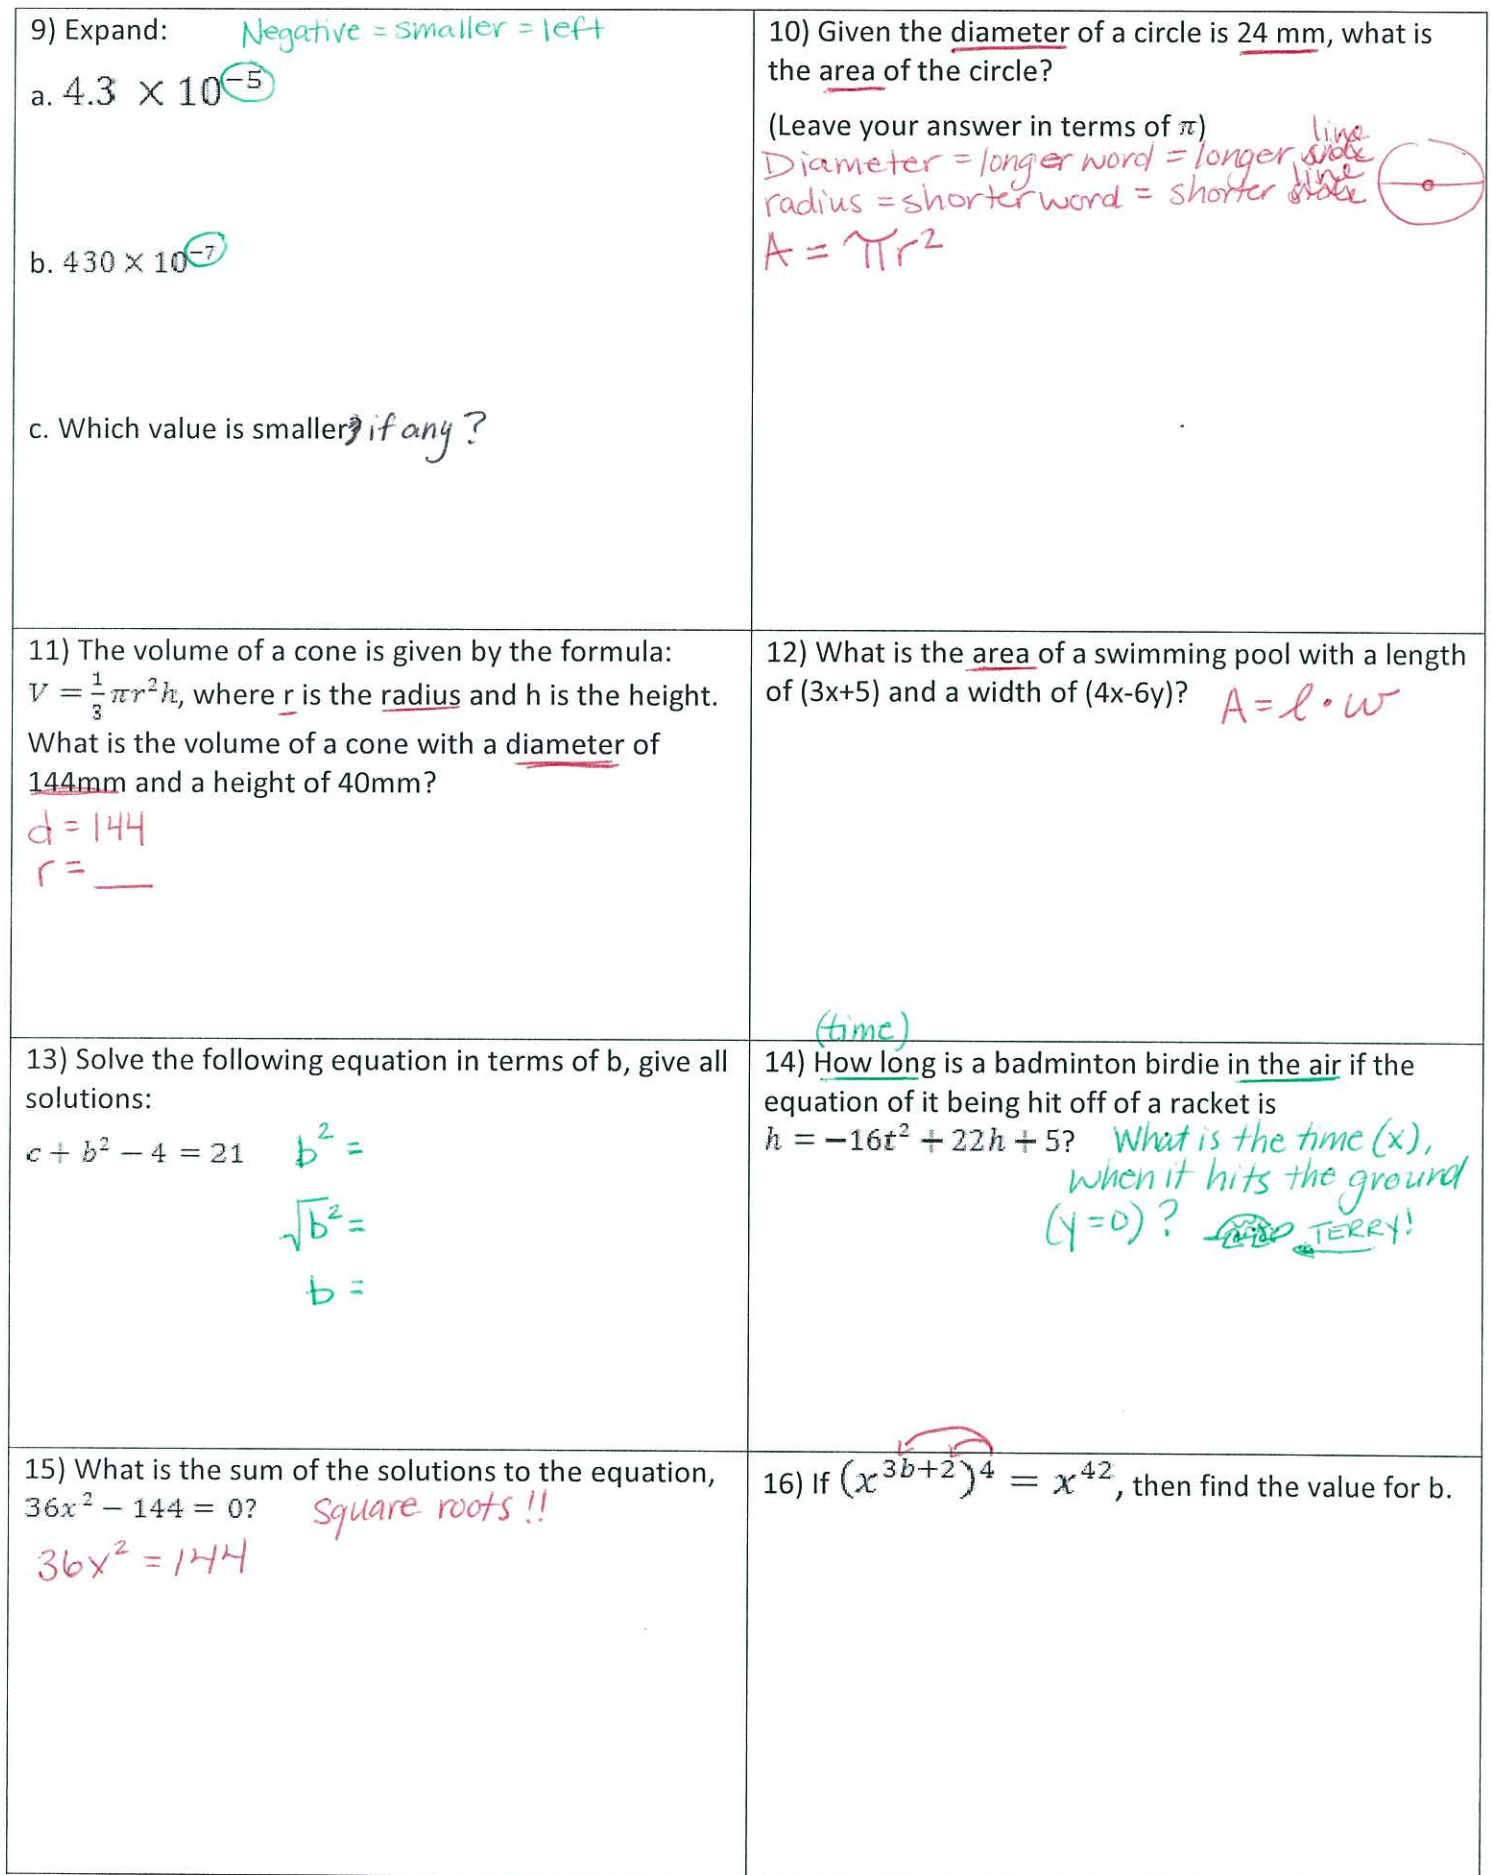 9) Expand: Negative = smaller = left
a. 4.3 × 10⁻⁵
b. 430 × 10⁻⁷
c. Which value is smaller, if any?
10) Given the diameter of a circle is 24 mm, what is
the area of the circle?
(Leave your answer in terms of π)
Diameter = longer word = longer line
radius = shorter word = shorter line
A = πr²
11) The volume of a cone is given by the formula:
V = 1/3 πr²h, where r is the radius and h is the height.
What is the volume of a cone with a diameter of
144mm and a height of 40mm?
d = 144
r = __
12) What is the area of a swimming pool with a length
of (3x+5) and a width of (4x-6y)? A = l · w
13) Solve the following equation in terms of b, give all
solutions:
c + b² − 4 = 21 b² =
√b² =
b =
(time)
14) How long is a badminton birdie in the air if the
equation of it being hit off of a racket is
h = −16t² + 22h + 5? What is the time (x),
when it hits the ground
(y=0)? TERRY!
15) What is the sum of the solutions to the equation,
36x² − 144 = 0? Square roots!!
36x² = 144
16) If (x³ᵇ⁺²)⁴ = x⁴², then find the value for b.